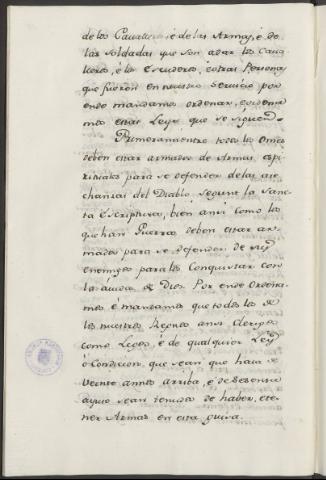 de los Cavalleros é de las Armas, é de
las soldadas que son a dar los Cava
lleros, é los Escuderos, é otras Personas
que fueron en nuestro servicio por
ende mandamos ordenar, é ordena
mos estas Leyes que se siguen.
Primeramente todos los Omes
deben estar armados de Armas espi
rituales para se defender de las ase
chanzas del Diablo segunt la Sanc
ta Escriptura, bien ansi como los
que han Guerras deben estar ar
mados para se defender de sus
enemigos para los Conquistar con
la aiuda de Dios. Por ende Ordena
mos, é mandamos que todos los de
los nuestros Regnos ansi Clerigos
como Legos, é de qualquier Ley
ó Condicion, que sean que haia de
veinte annos arriba, é de sesenta
ayuso sean tenudos de haber, é te
ner Armas en esta guisa.